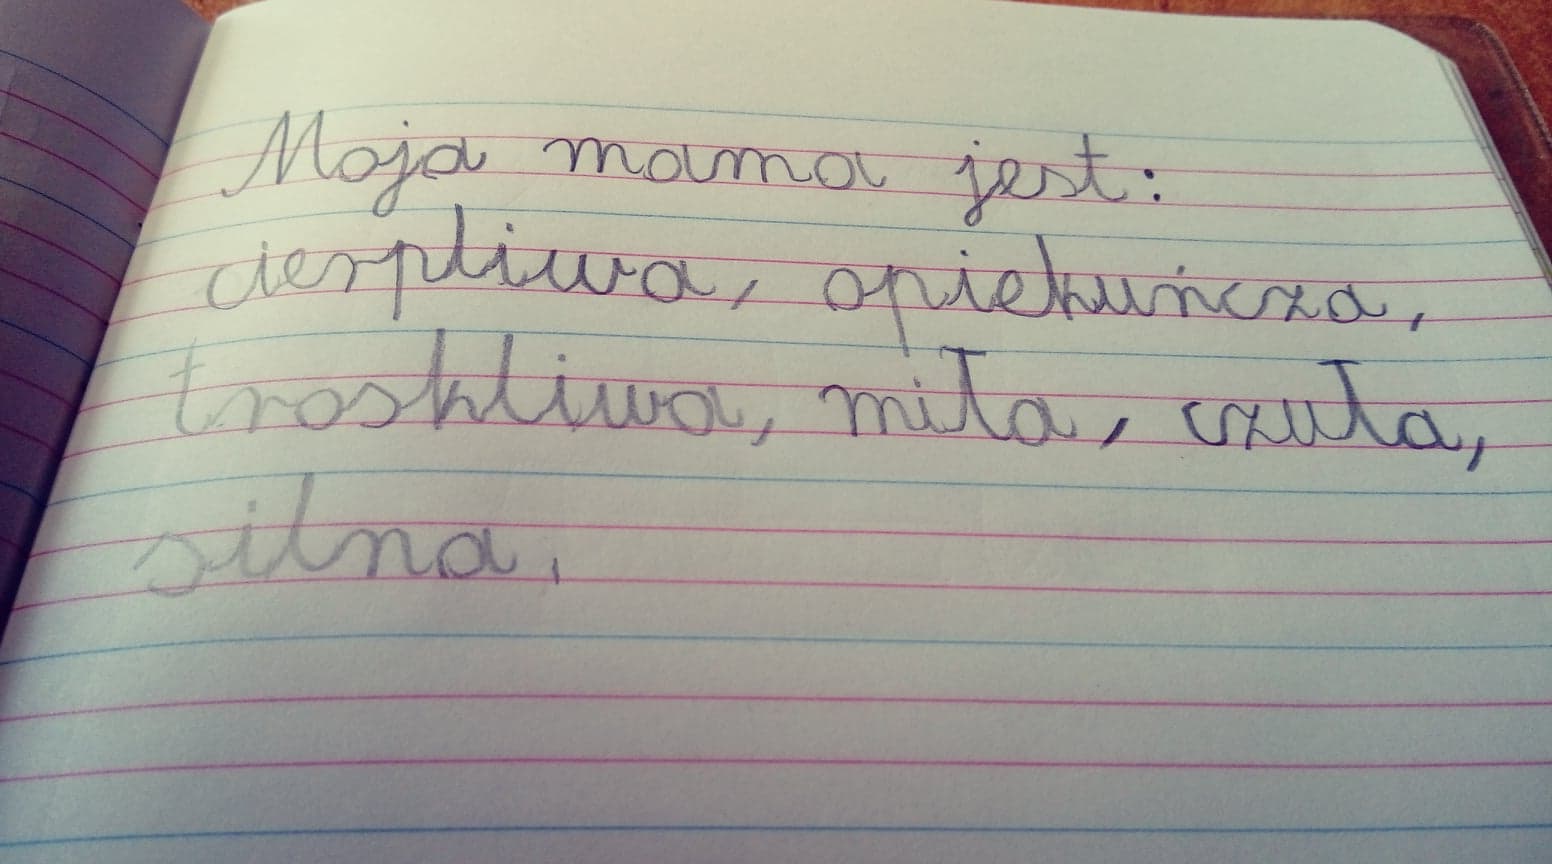 Moja mama jest:
cierpliwa, opiekuńcza,
troskliwa, miła, czuła,
silna,